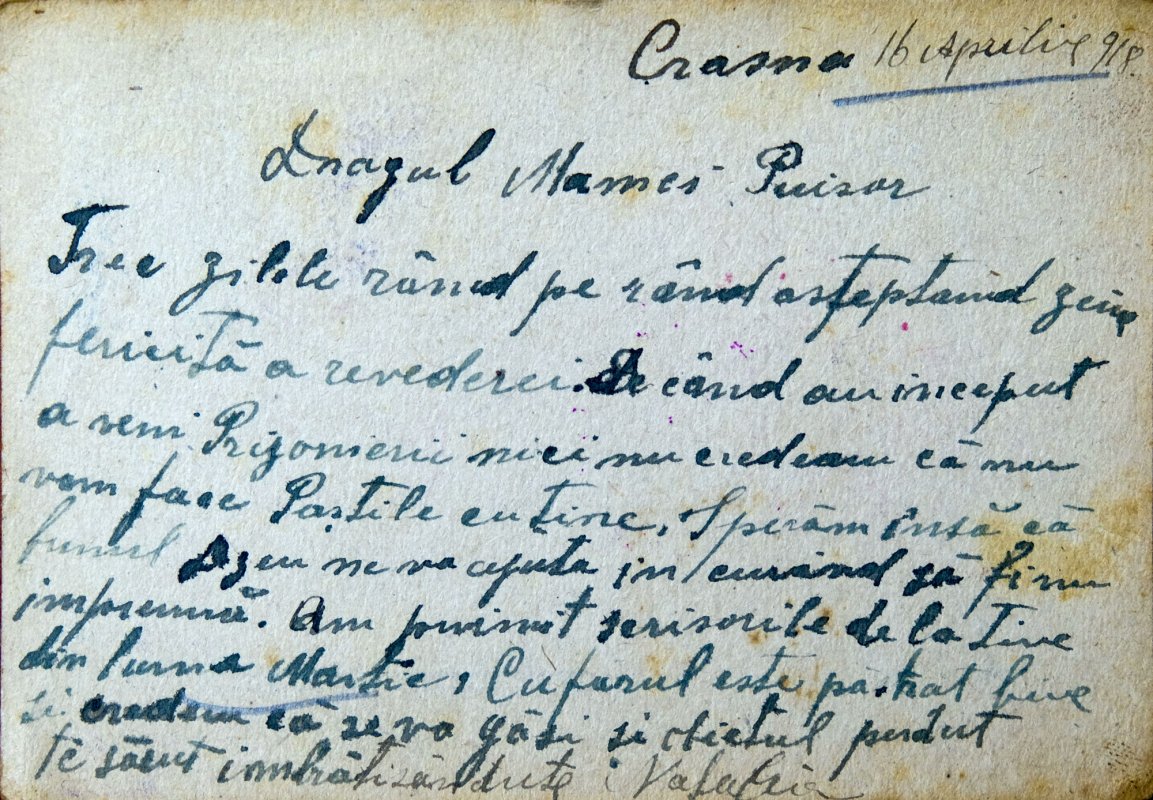 Crasna 16 Aprilie 918.
Dragul Mamei Puisor
Trec zilele rând pe rând asteptând ziua
fericită a revederei. De când au inceput
a veni Prizonierii nici nu credeam că nu
vom face Pastile cu tine, Sperăm însă că
bunul Dzeu ne va ajuta in curând să fim
impreună. Am primit scrisorile de la tine
din luna Martie, Cufarul este păstrat bine
si credem că se va găsi si obiectul perdut
te sărut imbrătisându-te Natalia